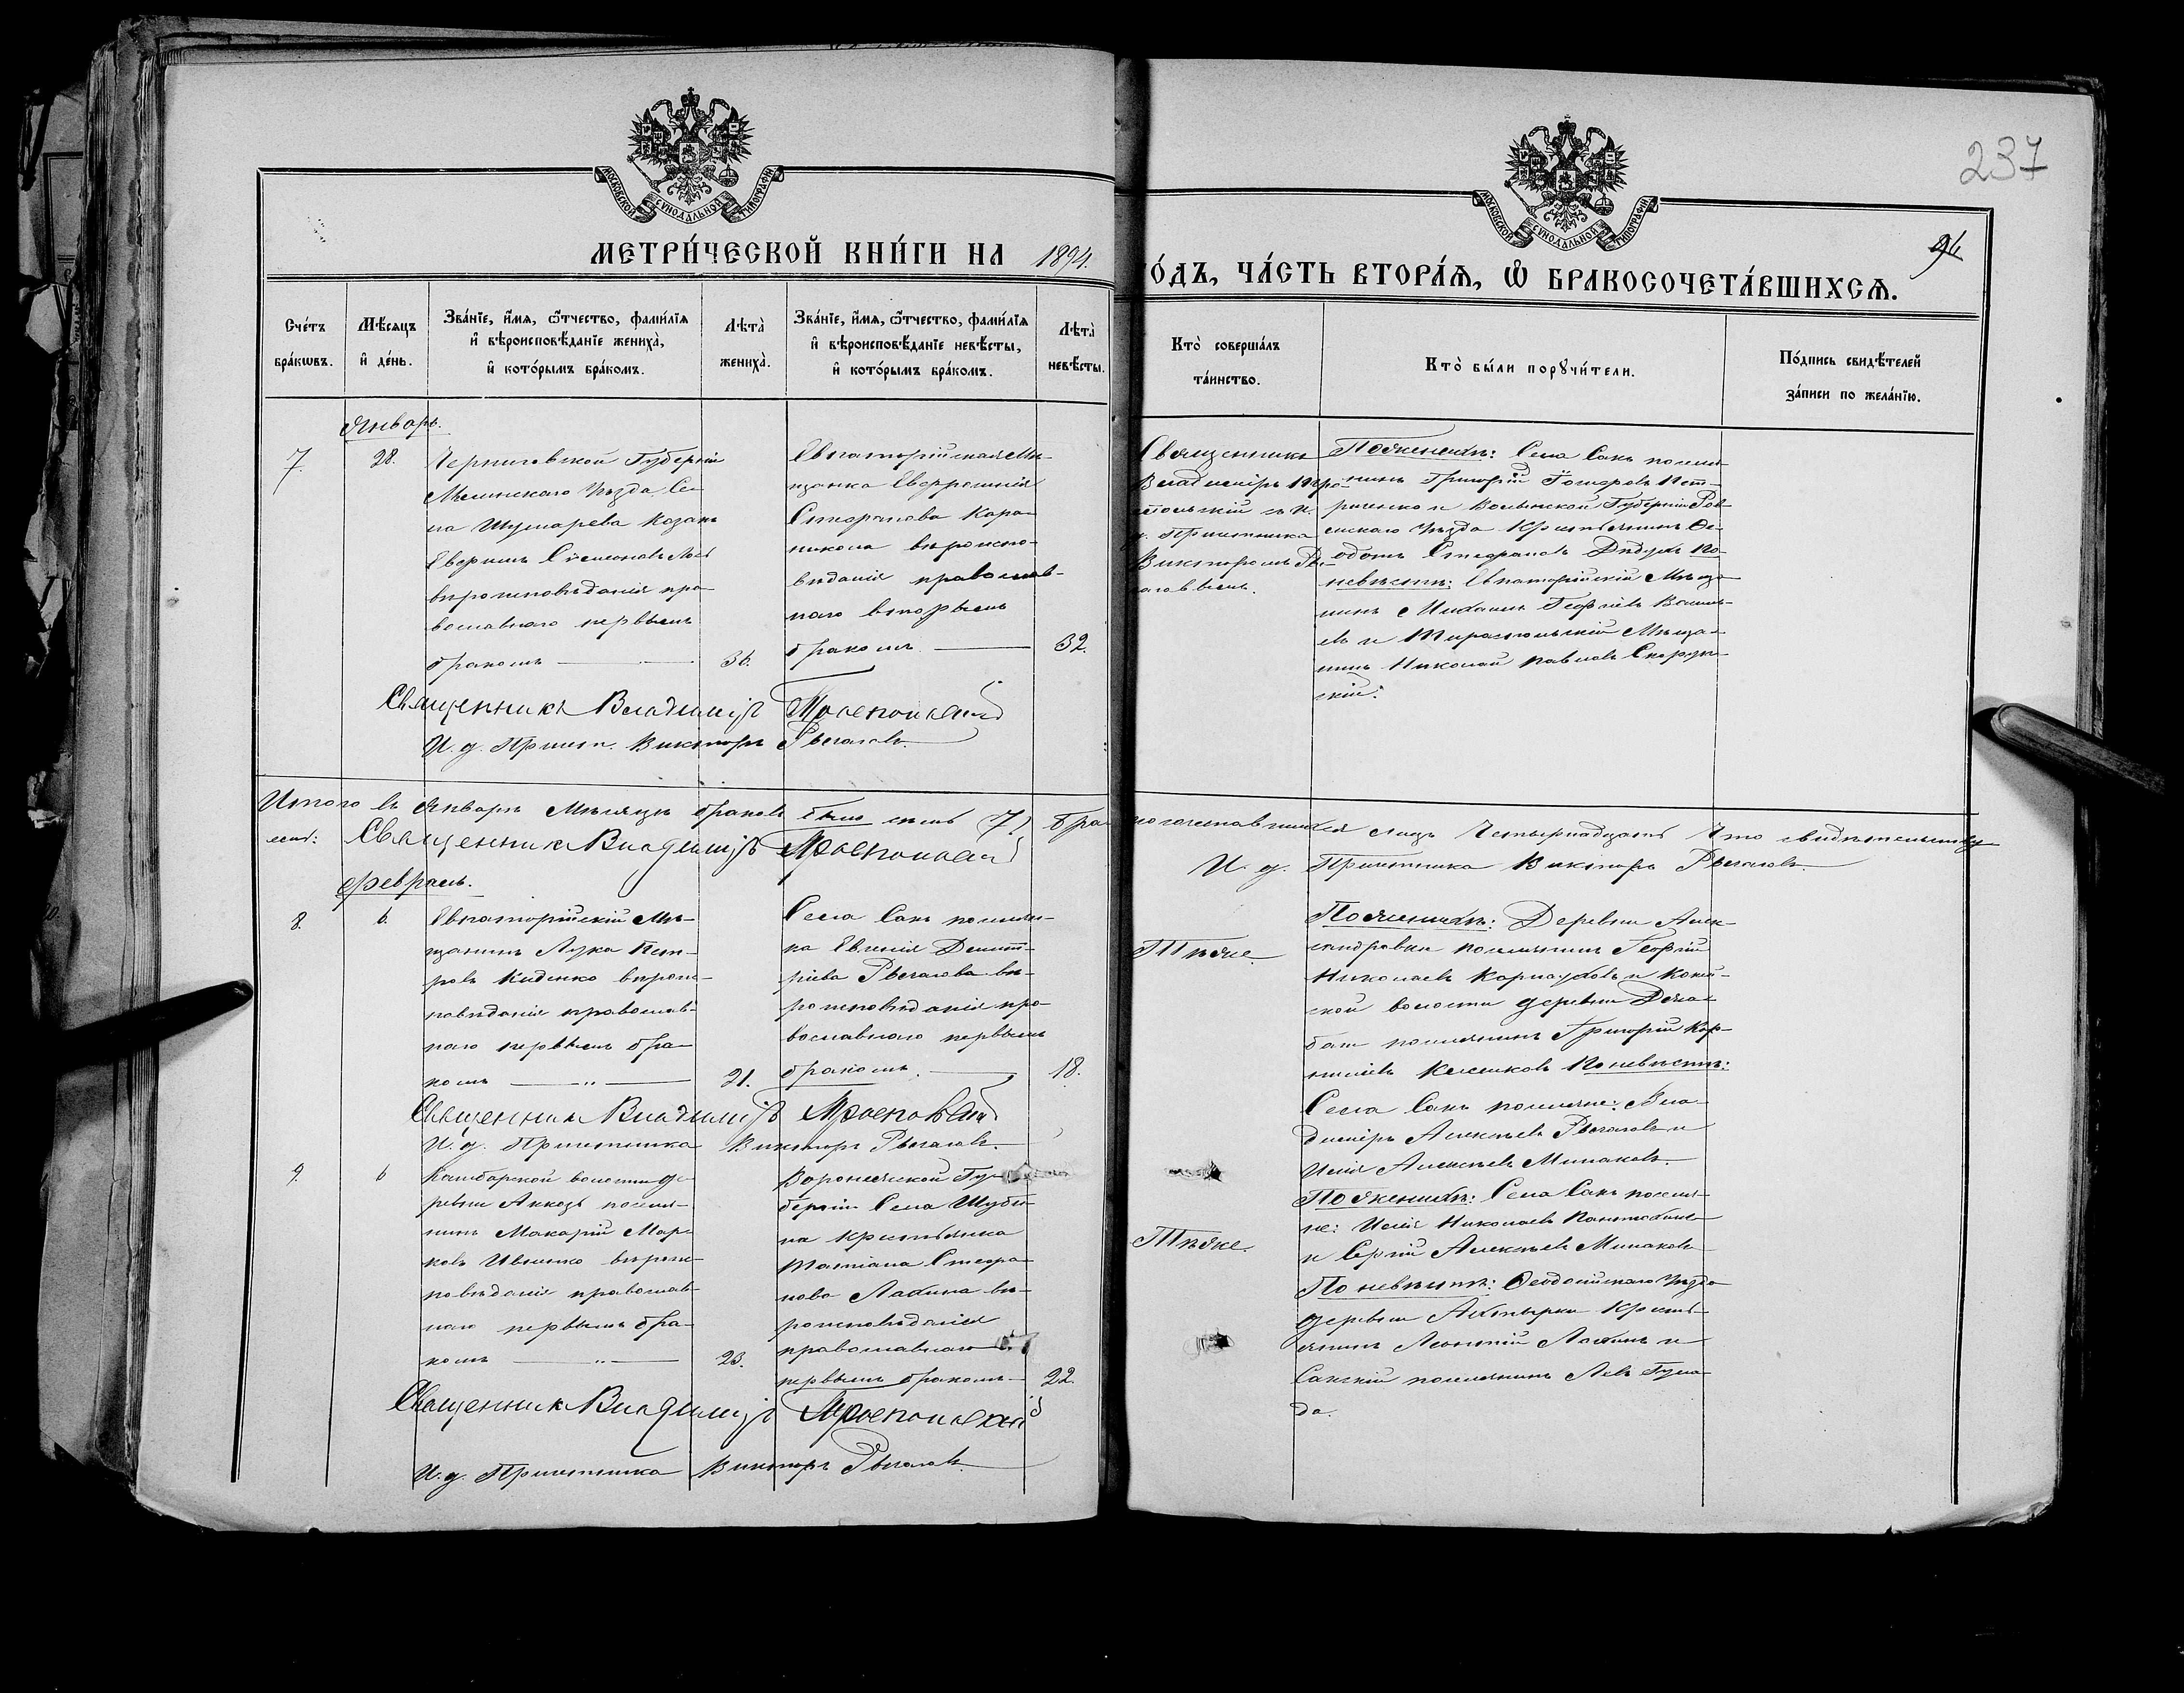 237
МОСКОВСКОЙ СѴНОДАЛЬНОЙ ТИПОГРАФІИ
МОСКОВСКОЙ СѴНОДАЛЬНОЙ ТИПОГРАФІИ
МЕТРИ́ЧЕСКОЙ КНИ́ГИ НА 1894.
ГО́ДЪ, ЧА́СТЬ ВТОРА́Ѧ, Ѡ҆ БРАКОСОЧЕТА́ВШИХСѦ.
Сче́тъ
бра́кѡвъ.
Мѣ́сѧцъ
и҆ де́нь.
Зва́нїе, и҆́мѧ, ѻ҆́тчество, фами́лїѧ
и҆ вѣроисповѣ́данїе жениха̀,
и҆ кото́рымъ бра́комъ.
Лѣта̀
жениха̀.
Зва́нїе, и҆́мѧ, ѻ҆́тчество, фами́лїѧ
и҆ вѣроисповѣ́данїе невѣ́сты,
и҆ кото́рымъ бра́комъ.
Лѣта̀
невѣ́сты.
Кто̀ соверша́лъ
та́инство.
Кто̀ бы́ли порꙋчи́тели.
По́дпись свидѣ́телей
за́писи по жела́нїю.
Январь.
7.
28.
Черниговской Губерніи
Мглинскаго Уѣзда Се-
ла Шумарева Козакъ
Стефановъ
вѣроисповѣданія пра-
вославнаго первымъ
бракомъ
36.
Евпаторійская Мѣ-
щанка Евфросинія
Стефанова Кара-
никола вѣроиспо-
вѣданія православ-
наго вторымъ
бракомъ
32.
Священникъ
Владиміръ
Псаломщика
Викторомъ
По женихѣ: Села Сакъ поселя-
нинъ Григорій Пет-
риченко и Волынской Губерніи Ров-
енскаго Уѣзда Крестьянинъ Ѳе-
одотъ Стефановъ Дидукъ По
невѣстѣ: Евпаторійскій Мѣща-
нинъ Михаилъ Георгіевъ Василь-
евъ и Тираспольскій Мѣща-
нинъ Николай Павловъ
скій.
Священникъ Владиміръ
И. д. Викторъ Рычаговъ.
Итого въ Январѣ Мѣсяцѣ браковъ было семь (7) бра
косочетавшихся лицъ Четырнадцать Что свидѣтельству-
емъ: Священникъ Владиміръ
И. д. Викторъ Рычаговъ.
Февраль.
8.
6.
Евпаторійскій Мѣ-
щанинъ Лука Пет-
ровъ Киденко вѣроис-
повѣданія православ-
наго первымъ бра-
комъ
21.
Села Сакъ поселян-
ка Евгенія Димит-
ріева Рычагова вѣ-
роисповѣданія пра-
вославнаго первымъ
бракомъ.
18.
Тѣже.
По женихѣ: Деревни Алек-
сандровки поселянинъ Георгій
Николаевъ Карнауховъ и
ской волости деревни
поселянинъ Григорій Кор-
ниліевъ По невѣстѣ:
Села Сакъ поселяне: Вла-
диміръ Алексѣевъ Рычаговъ и
Илія Алексѣевъ Минаковъ.
Священникъ Владиміръ
И. д. Викторъ Рычаговъ.
9.
6
Камбарской волости де-
ревни Аккозъ поселя-
нинъ Макарій Мар-
ковъ Ивченко вѣроис-
повѣданія православ-
наго первымъ бра-
комъ
23.
Воронежской Гу-
берніи Села Шуби-
на крестьянка
Татіана Стефа-
нова Лахина вѣ-
роисповѣданія
православнаго
первымъ бракомъ
22.
Тѣже.
По женихѣ: Села Сакъ поселя-
не: Илія Николаевъ
и Сергій Алексѣевъ Минаковъ
По невѣстѣ: Ѳеодосійскаго Уѣзда
деревни Ахтырки Кресть-
янинъ Леонтій Лахинъ и
Сакскій поселянинъ Левъ Гула-
да.
Священникъ Владиміръ
И. д. Викторъ Рычаговъ.